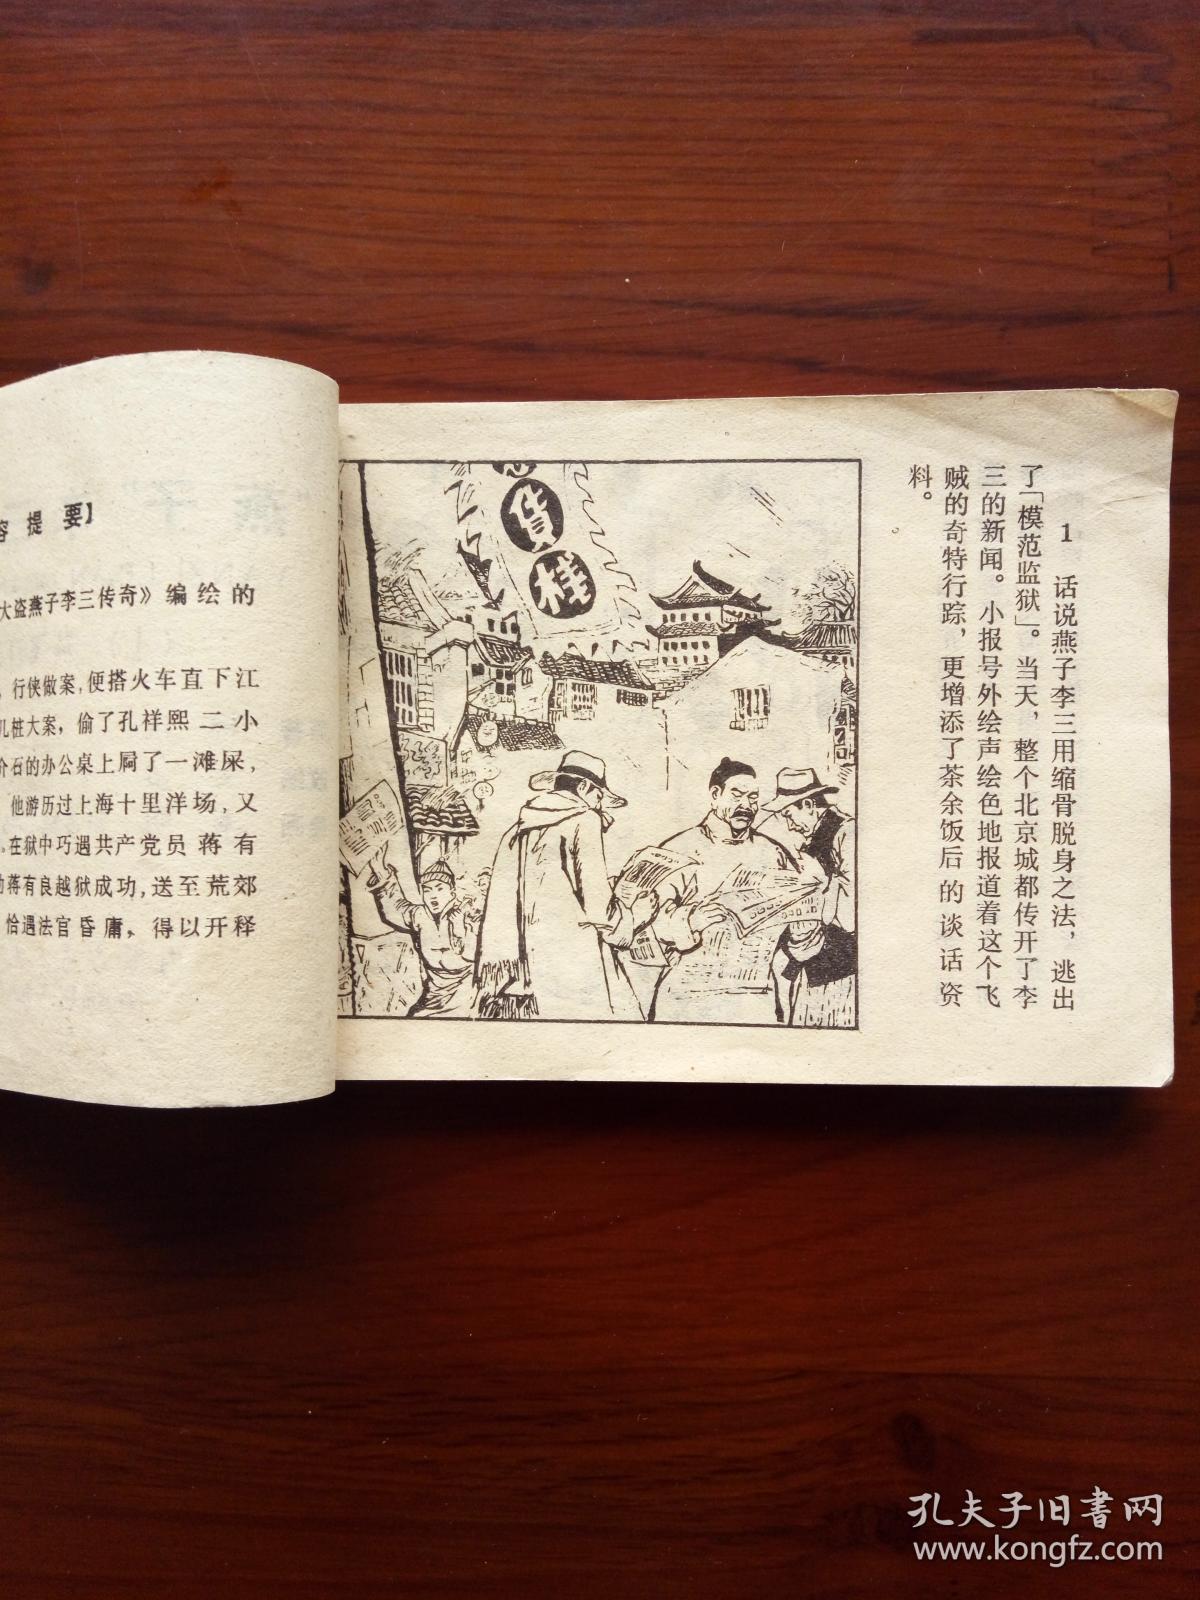 容提要】
大盗燕子李三传奇》编绘的
，行侠做案，便搭火车直下江
几桩大案，偷了孔祥熙二小
介石的办公桌上屙了一滩屎，
他游历过上海十里洋场，又
。在狱中巧遇共产党员蒋有
助蒋有良越狱成功，送至荒郊
恰遇法官昏庸，得以开释
貨
桂
1 话说燕子李三用缩骨脱身之法，逃出
了「模范监狱」。当天，整个北京城都传开了李
三的新闻。小报号外绘声绘色地报道着这个飞
贼的奇特行踪，更增添了茶余饭后的谈话资
料。
孔夫子旧书网
www.kongfz.com